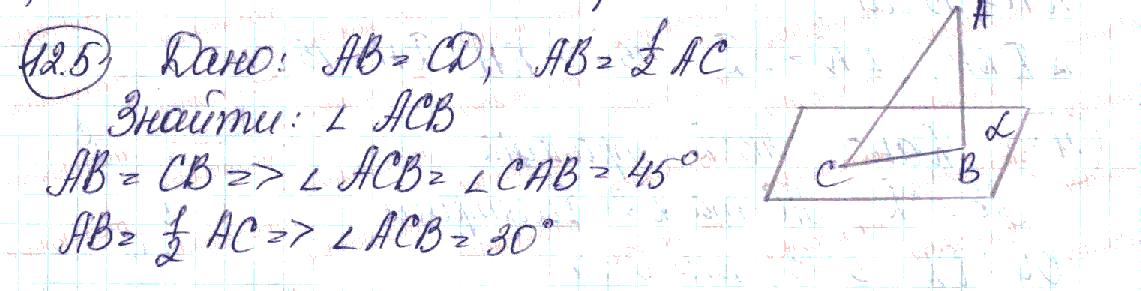 12.5 Дано: AB = CD; AB = 1/2 AC
Знайти: ∠ ACB
AB = CB => ∠ ACB = ∠ CAB = 45°
AB = 1/2 AC => ∠ ACB = 30°
A
C
B
α